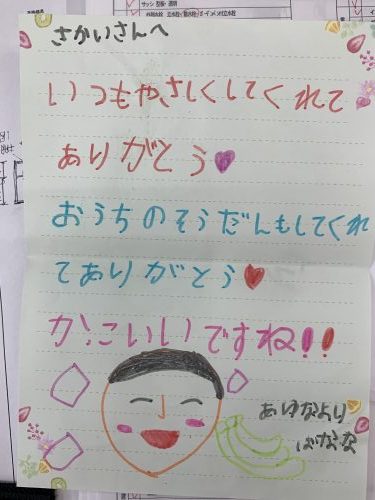 さかいさんへ
いつもやさしくしてくれて
ありがとう
おうちのそうだんもしてくれ
てありがとう
かっこいいですね!!
あゆなより
ばなな